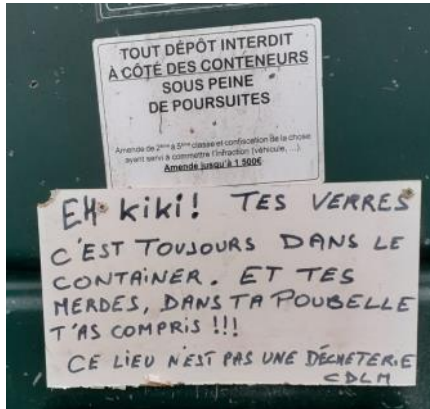 TOUT DÉPÔT INTERDIT
À CÔTÉ DES CONTENEURS
SOUS PEINE
DE POURSUITES
Amende de 2ème à 5ème classe et confiscation de la chose
ayant servi à commettre l'infraction (véhicule, ...).
Amende jusqu'à 1 500€
EH kiki! TES VERRES
C'EST TOUJOURS DANS LE
CONTAINER. ET TES
MERDES, DANS TA POUBELLE
T'AS COMPRIS !!!
CE LIEU N'EST PAS UNE DÉCHETERIE
CDLM